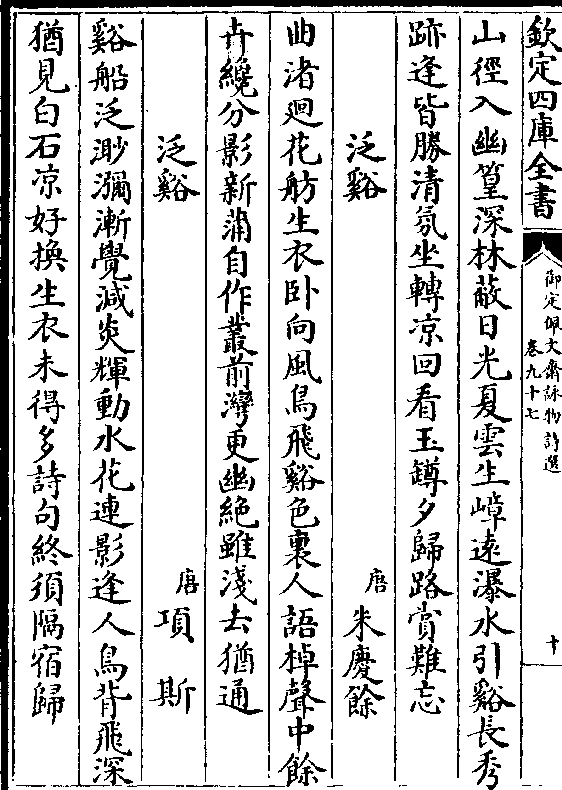 欽定四庫全書
御定佩文齋詠物詩選
卷九十七
十
山徑入幽篁深林蔽日光夏雲生嶂遠瀑水引谿長秀
跡逢皆勝清氛坐轉涼回看玉罇夕歸路賞難忘
泛谿 唐 朱慶餘
曲渚迴花舫生衣卧向風鳥飛谿色裏人語棹聲中餘
卉纔分影新蒲自作叢前灣更幽絶雖淺去猶通
泛谿 唐 項斯
谿船泛渺瀰漸覺減炎輝動水花連影逢人鳥背飛深
猶見白石凉好換生衣未得多詩句終須隔宿歸